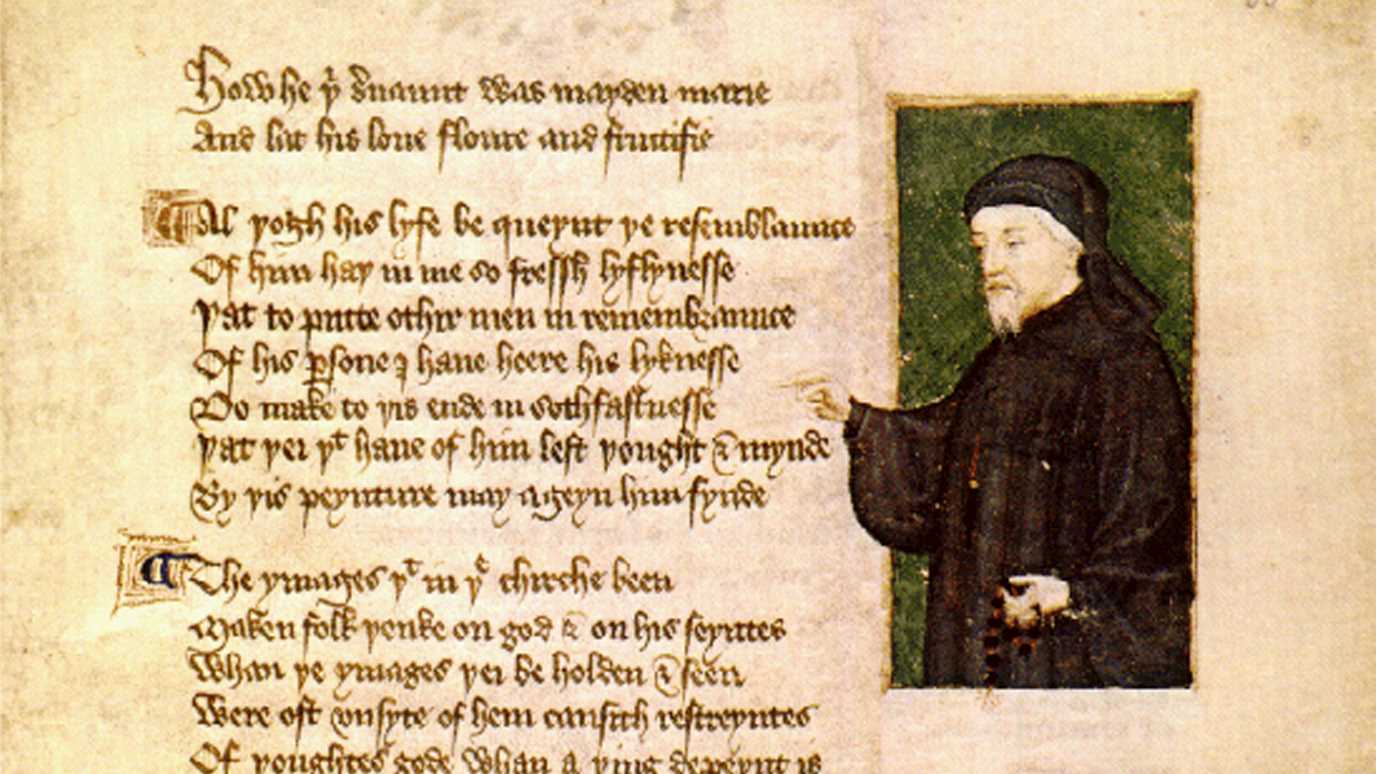 How he þi s'uaunt was mayden marie
And lat his loue floure and fructifie
Al þogh his lyfe be queynt þe resemblaunce
Of him haþ in me so fressh lyflynesse
Þat to putte othir men in remembraunce
Of his ꝑsone I haue heere his lyknesse
Do make to þis ende in sothfastnesse
Þat þei þt haue of him left þought & mynde
By þis peynture may ageyn him fynde
The ymages þt in þe chirche been
Maken folk þenke on god & on his seyntes
Whan þe ymages þei be holden & seen
Were oft vnsyte of hem causith restreyntes
Of þoughtes gode whan a þing depeynt is